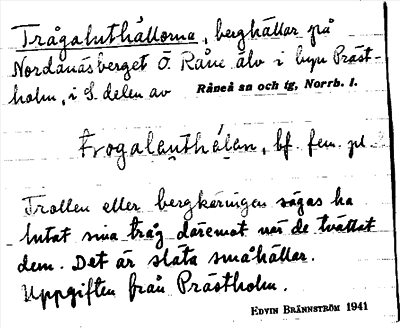 Trågaluthällorna, berghällar på
Nordanäsberget Ö Råne älv i byn Präst-
holm, i S. delen av Råneå sn och tg, Norrb. l.
trogaluthélan, bf. fem. pl.
Trollen eller bergkäringen sägas ha
lutat sina tråg däremot när de tvättat
dem. Det är släta småhällar.
Uppgiften från Prästholm.
EDVIN BRÄNNSTRÖM 1941